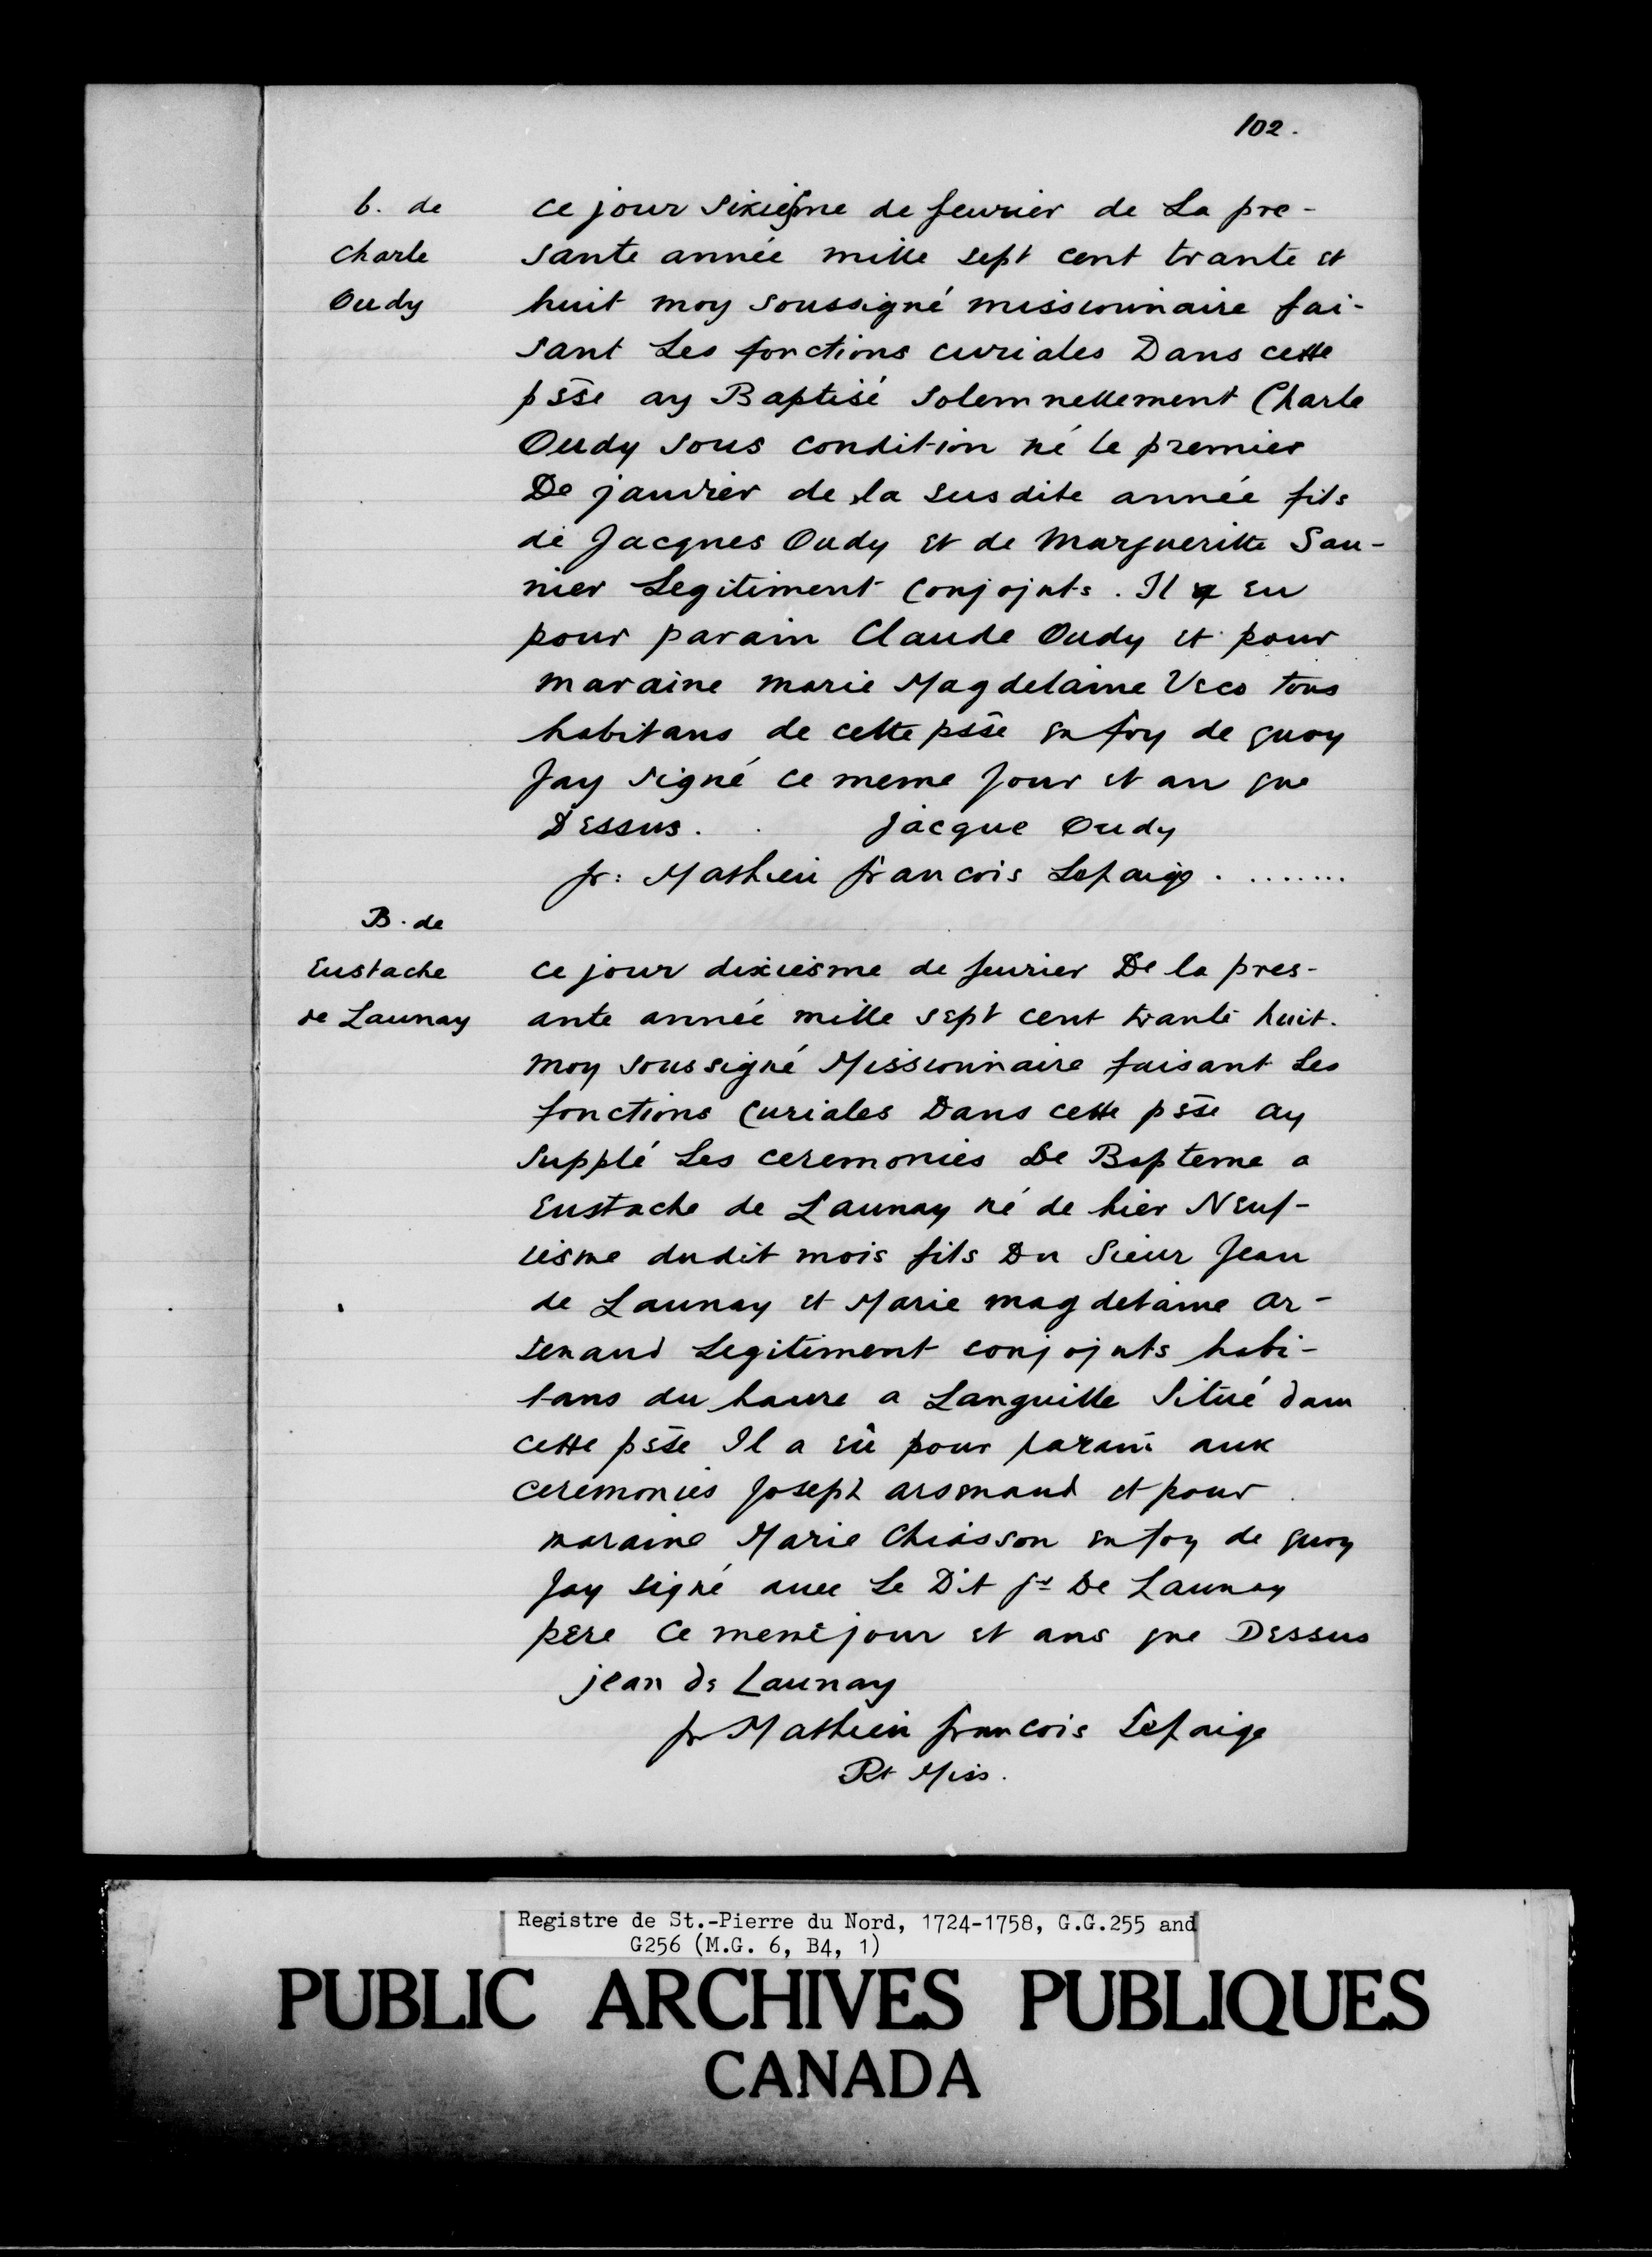 102.
b. de
Charle
Oudy
ce jour sixiesme de feurier de La pre-
sante année mille sept cent trante et
huit moy soussigné missionnaire fai-
sant Les fonctions curiales Dans cette
psse ay Baptisé solemnellement Charle
Oudy sous condition né le premier
De janvier de la susdite année fils
de Jacques Oudy et de Margueritte Sau-
nier Legitiment Conjojnts. Il a eu
pour parain Claude Oudy et pour
maraine marie Magdelaine Veco tous
habitans de cette psse en foy de quoy
Jay signé ce meme Jour et an que
Dessus. jacque Oudy
fr: Mathieu francois Lepaige ........
B. de
Eustache
de Launay
ce jour dixiesme de feurier De la pres-
ante année mille sept cent trante huit.
moy soussigné Missionnaire faisant Les
fonctions Curiales Dans cette psse ay
supplé Les ceremonies De Bapteme a
Eustache de Launay né de hier Neuf-
iesme dudit mois fils Du Sieur Jean
de Launay et Marie magdelaine ar-
senaud Legitiment conjojnts habi-
tans du haure a Languille Situé dans
cette psse Il a eû pour parain aux
ceremonies Joseph arsenaud et pour
maraine Marie Chiasson en foy de quoy
Jay signé auec Le Dit sr De Launay
pere Ce meme jour et ans que Dessus
jean de Launay
fr Mathieu francois Lepaige
Rt Miss.
Registre de St.-Pierre du Nord, 1724-1758, G.G.255 and
G256 (M.G. 6, B4, 1)
PUBLIC ARCHIVES PUBLIQUES
CANADA